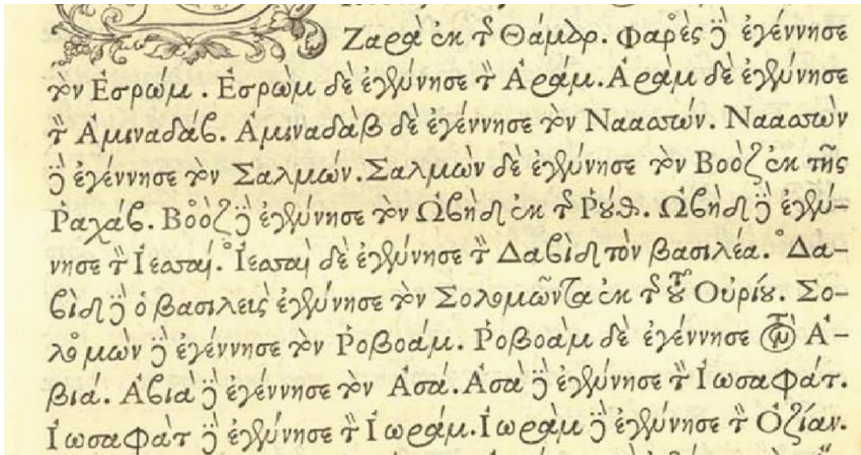 Ζαρὰ ἐκ τῆς Θάμαρ. Φαρὲς δὲ ἐγέννησε
τὸν Ἐσρώμ. Ἐσρὼμ δὲ ἐγέννησε τὸν Ἀράμ. Ἀρὰμ δὲ ἐγέννησε
τὸν Ἀμιναδάβ. Ἀμιναδὰβ δὲ ἐγέννησε τὸν Ναασσών. Ναασσὼν
δὲ ἐγέννησε τὸν Σαλμών. Σαλμὼν δὲ ἐγέννησε τὸν Βοὸζ ἐκ τῆς
Ῥαχάβ. Βοὸζ δὲ ἐγέννησε τὸν Ὠβὴδ ἐκ τῆς Ῥούθ. Ὠβὴδ δὲ ἐγέν-
νησε τὸν Ἰεσσαί. Ἰεσσαὶ δὲ ἐγέννησε τὸν Δαβὶδ τὸν βασιλέα. Δα-
βὶδ δὲ ὁ βασιλεὺς ἐγέννησε τὸν Σολομῶντα ἐκ τῆς τοῦ Οὐρίου. Σο-
λομὼν δὲ ἐγέννησε τὸν Ῥοβοάμ. Ῥοβοὰμ δὲ ἐγέννησε τὸν Ἀ-
βιά. Ἀβιὰ δὲ ἐγέννησε τὸν Ἀσά. Ἀσὰ δὲ ἐγέννησε τὸν Ἰωσαφάτ.
Ἰωσαφὰτ δὲ ἐγέννησε τὸν Ἰωράμ. Ἰωρὰμ δὲ ἐγέννησε τὸν Ὀζίαν.